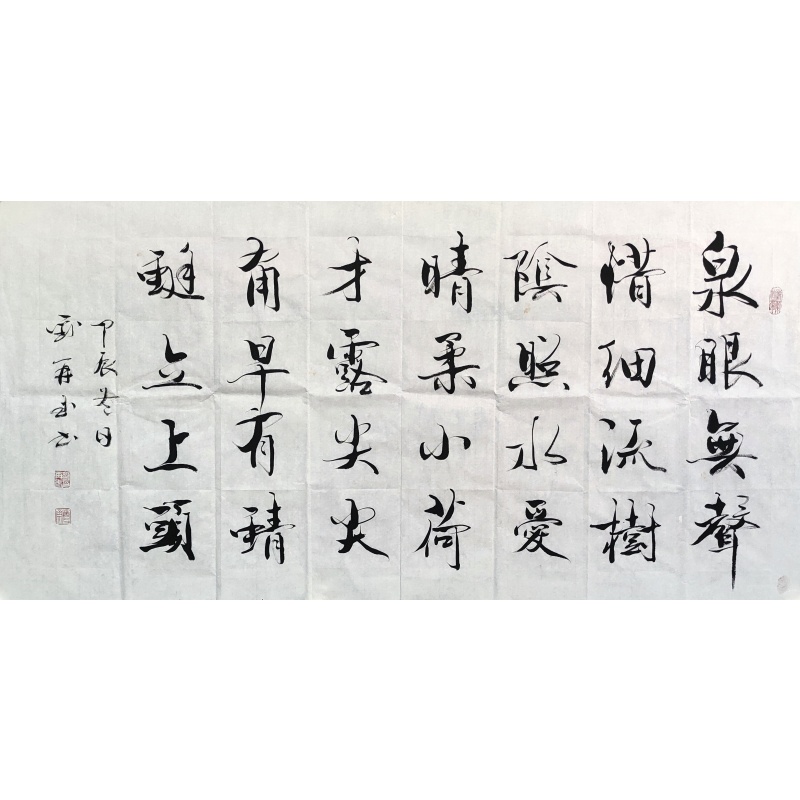 泉眼無聲
惜細流樹
陰照水愛
晴柔小荷
才露尖尖
角早有蜻
蜓立上頭
甲辰冬日